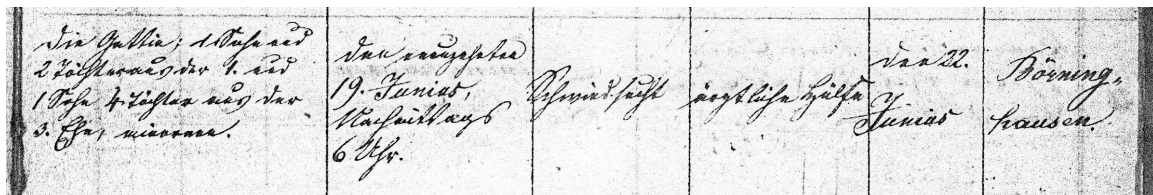 Die Gattin; 1 Sohn und
2 Töchter aus der 1. und
1 Sohn 4 Töchter aus der
3. Ehe, minorenn.
den neunzehnten
19. Junius,
Nachmittags
6 Uhr.
Schwindsucht
ärztliche Hülfe
den 22.
Junius
Börning-
hausen.